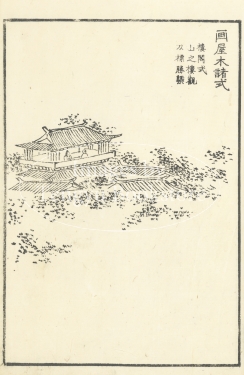 画屋木諸式
樓閣式
山之樓觀
以標勝槩